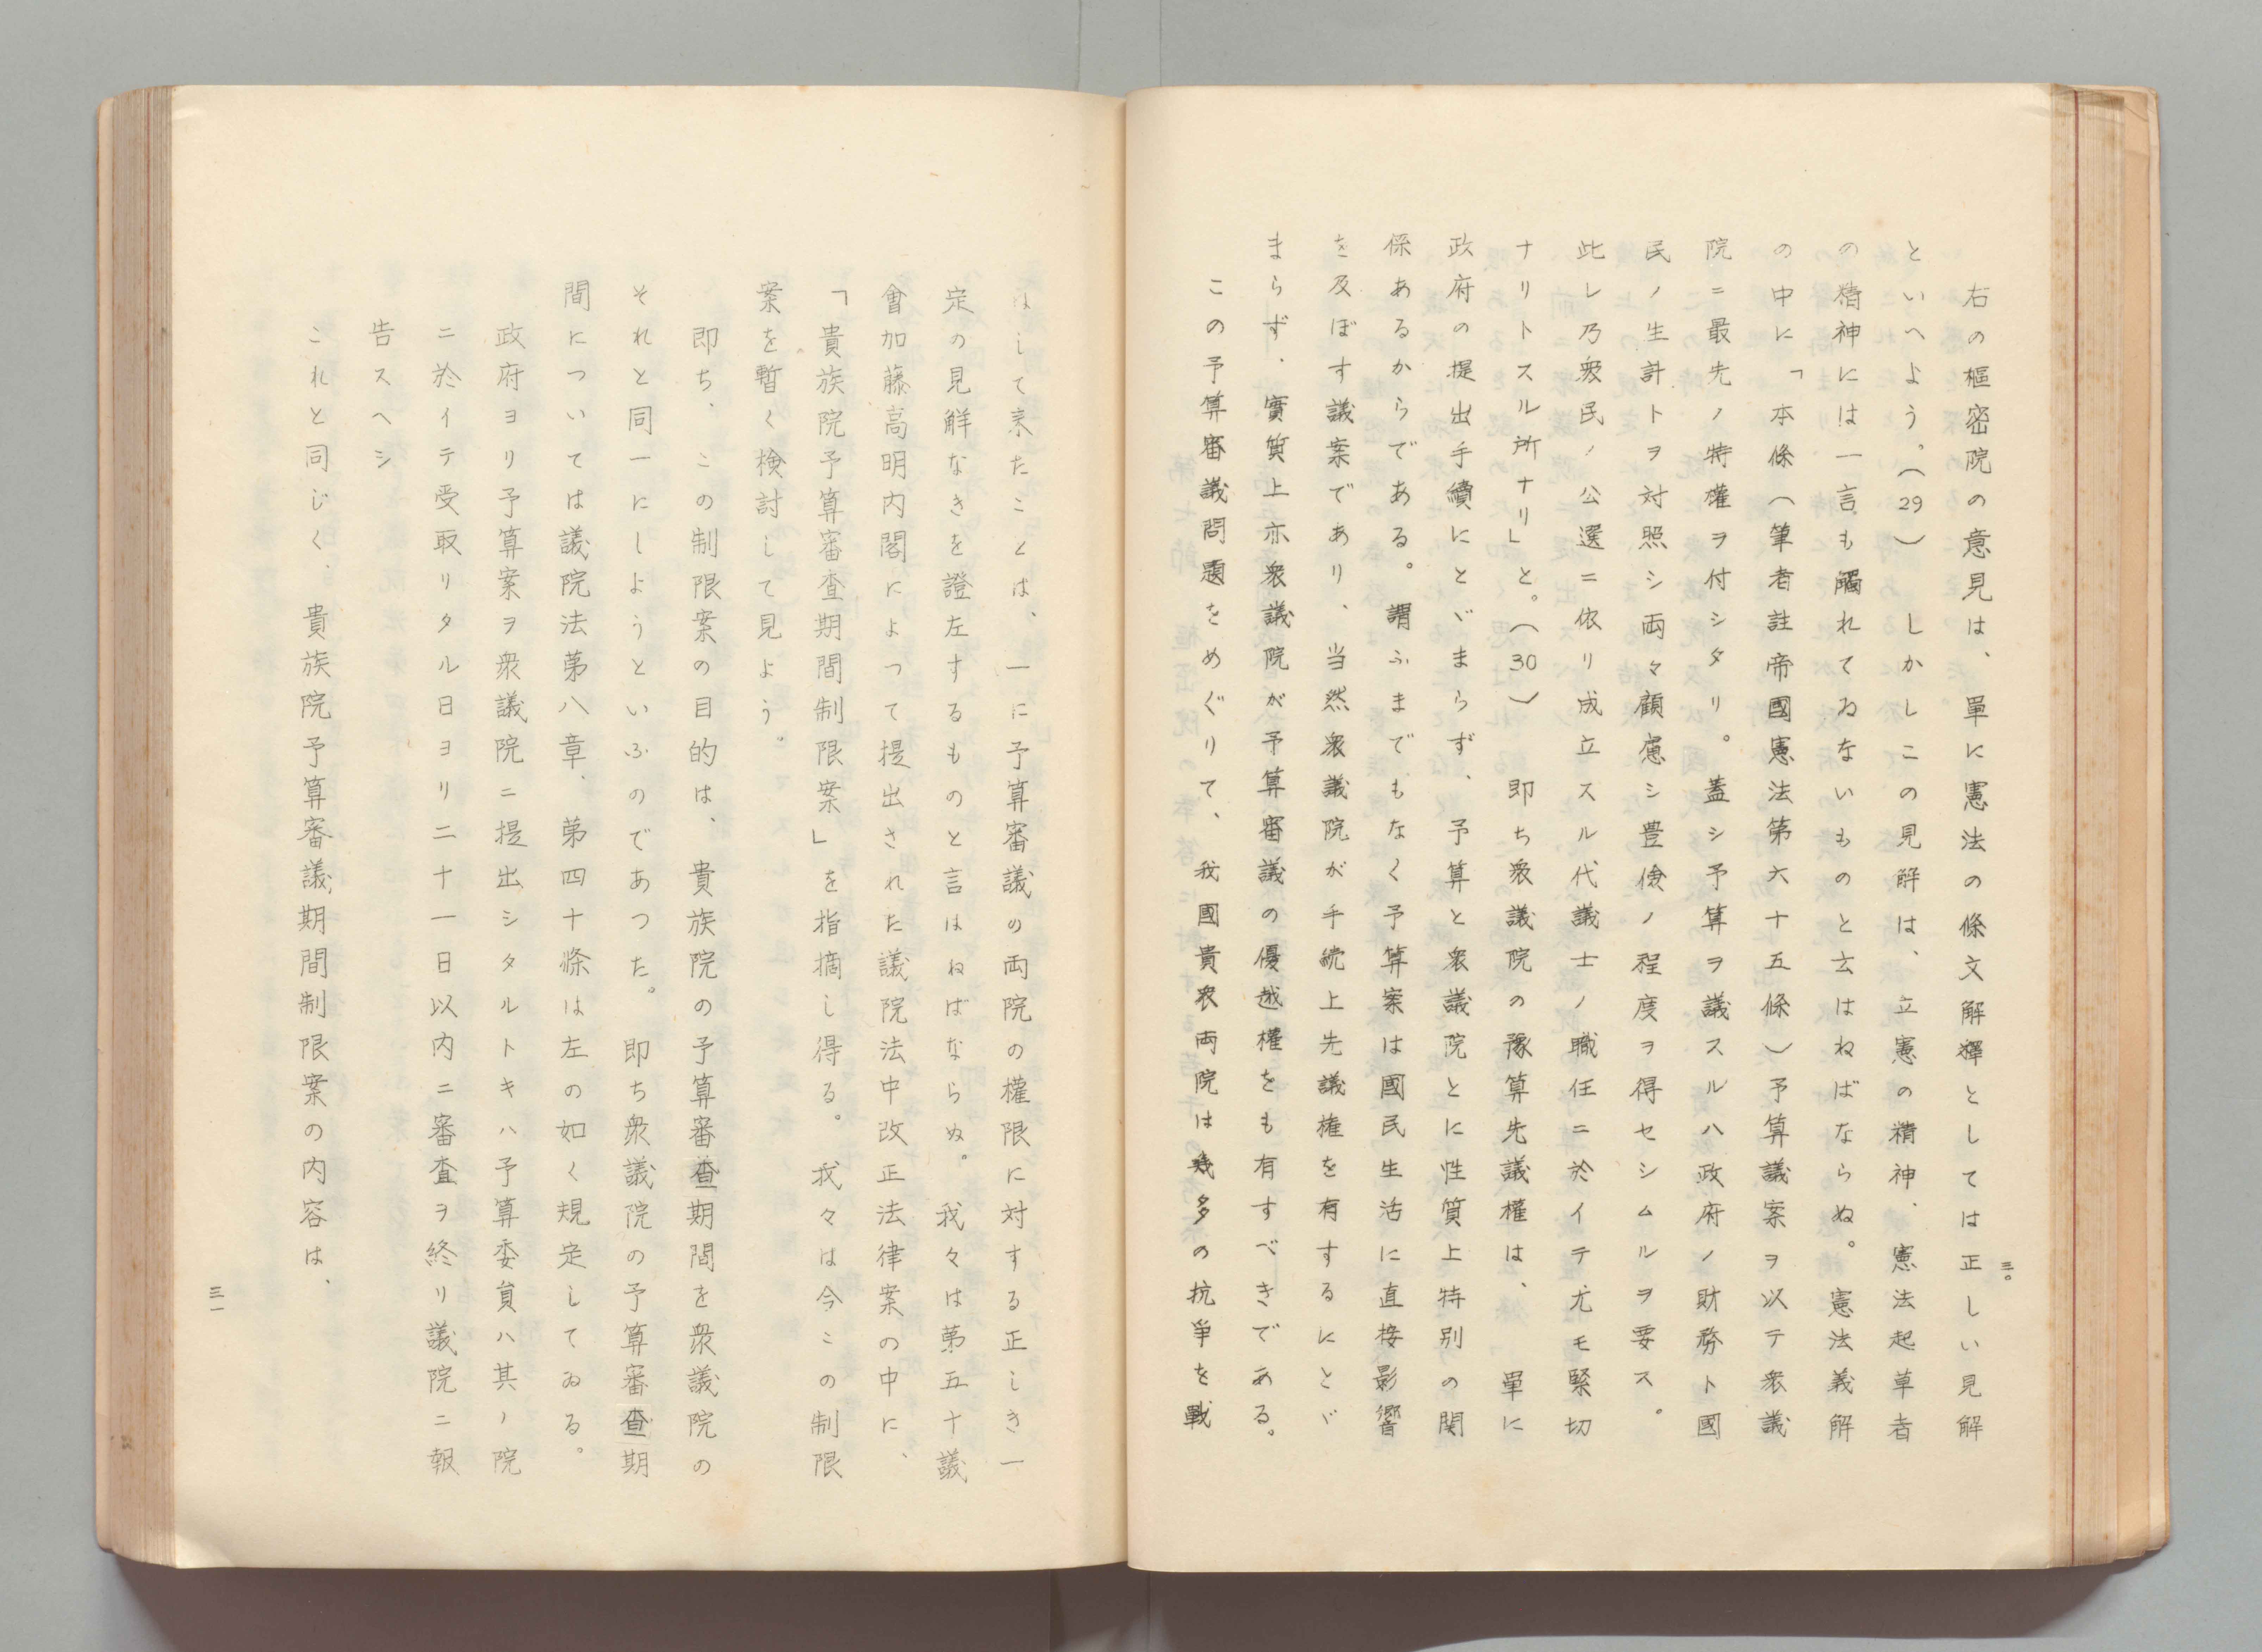 三〇
右の樞密院の意見は、單に憲法の條文解釋としては正しい見解
といへよう。(29) しかしこの見解は、立憲の精神、憲法起草者
の精神には一言も觸れてゐないものと云はねばならぬ。憲法義解
の中に「本條(筆者註帝國憲法第六十五條)予算議案ヲ以テ衆議
院ニ最先ノ特權ヲ付シタリ。蓋シ予算ヲ議スルハ政府ノ財務ト國
民ノ生計トヲ対照シ両々顧慮シ豊儉ノ程度ヲ得セシムルヲ要ス。
此レ乃衆民ノ公選ニ依リ成立スル代議士ノ職任ニ於イテ尤モ緊切
ナリトスル所ナリ」と。(30) 即ち衆議院の豫算先議權は、單に
政府の提出手續にとゞまらず、予算と衆議院とに性質上特別の関
係あるからである。謂ふまでもなく予算案は國民生活に直接影響
を及ぼす議案であり、当然衆議院が手続上先議権を有するにとゞ
まらず、實質上亦衆議院が予算審議の優越權をも有すべきである。
この予算審議問題をめぐりて、我國貴衆両院は幾多の抗爭を戰
はして来たことは、一に予算審議の両院の權限に対する正しき一
定の見解なきを證左するものと言はねばならぬ。我々は第五十議
會加藤高明内閣によつて提出された議院法中改正法律案の中に、
「貴族院予算審査期間制限案」を指摘し得る。我々は今この制限
案を暫く検討して見よう。
即ち、この制限案の目的は、貴族院の予算審査期間を衆議院の
それと同一にしようといふのであつた。即ち衆議院の予算審査期
間については議院法第八章、第四十條は左の如く規定してゐる。
政府ヨリ予算案ヲ衆議院ニ提出シタルトキハ予算委員ハ其ノ院
ニ於イテ受取リタル日ヨリ二十一日以内ニ審査ヲ終リ議院ニ報
告スヘシ
これと同じく、貴族院予算審議期間制限案の内容は、
三一